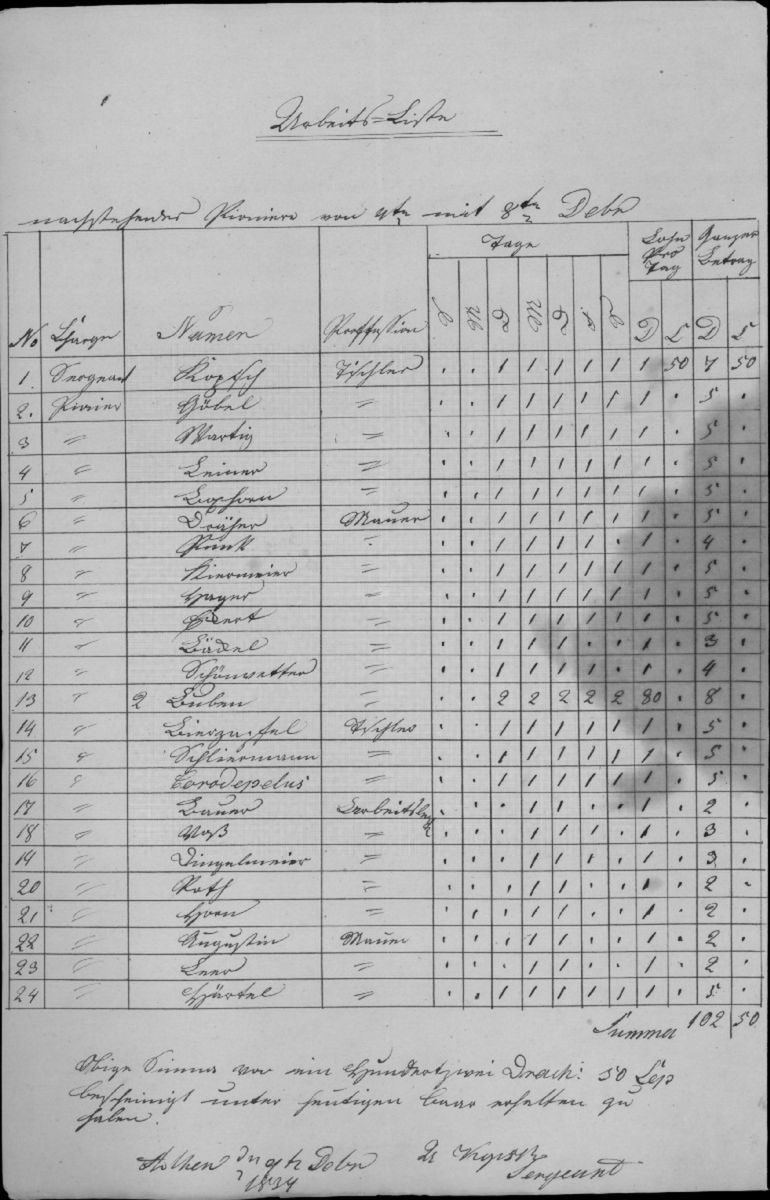 Arbeits=Liste
nachstehender Pioniere von 4te mit 8te Debr
No Charge Namen Proffession Tage Lohn pro Tag Ganzer Betrag
S M D M D F S D L D L
1. Sergeant Kopsch Tischler . . 1 1 1 1 1 1 50 7 50
2. Pionier Göbel " . . 1 1 1 1 1 1 . 5 .
3 " Wartig " . . 1 1 1 1 1 1 . 5 .
4 " Leiner " . . 1 1 1 1 1 1 . 5 .
5 " " . . 1 1 1 1 1 1 . 5 .
6 " Dräser Maurer . . 1 1 1 1 1 1 . 5 .
7 " Punk " . . 1 1 1 1 . 1 . 4 .
8 " Kiermeier " . . 1 1 1 1 1 1 . 5 .
9 " Hager " . . 1 1 1 1 1 1 . 5 .
10 " " . . 1 1 1 1 1 1 . 5 .
11 " Bädel " . . 1 1 1 . . 1 . 3 .
12 " Schönwetter " . . 1 1 1 1 . 1 . 4 .
13 " 2 Buben " . . 2 2 2 2 2 80 . 8 .
14 " Bierzapfel Tischler . . 1 1 1 1 1 1 . 5 .
15 " Schliermann " . . 1 1 1 1 1 1 . 5 .
16 " Corodepelus " . . 1 1 1 1 1 1 . 5 .
17 " Bauer . . . 1 1 . . 1 . 2 .
18 " Voß " . . . 1 1 1 . 1 . 3 .
19 " Dingelmeier " . . . 1 1 1 . 1 . 3 .
20 " Roth " . . . 1 1 . . 1 . 2 .
21 " Horn " . . . 1 1 . . 1 . 2 .
22 " Augustin Maurer . . . 1 1 . . 1 . 2 .
23 " Leer " . . . 1 1 . . 1 . 2 .
24 " Härtel " . . 1 1 1 1 1 1 . 5 .
Summa 102 50
Obige Summa von ein Hundertzwei Drach: 50 Lep
bescheinigt unter heutigen baar erhalten zu
haben.
Athen den 9te Debr
1834
Kopsch
Sergeant